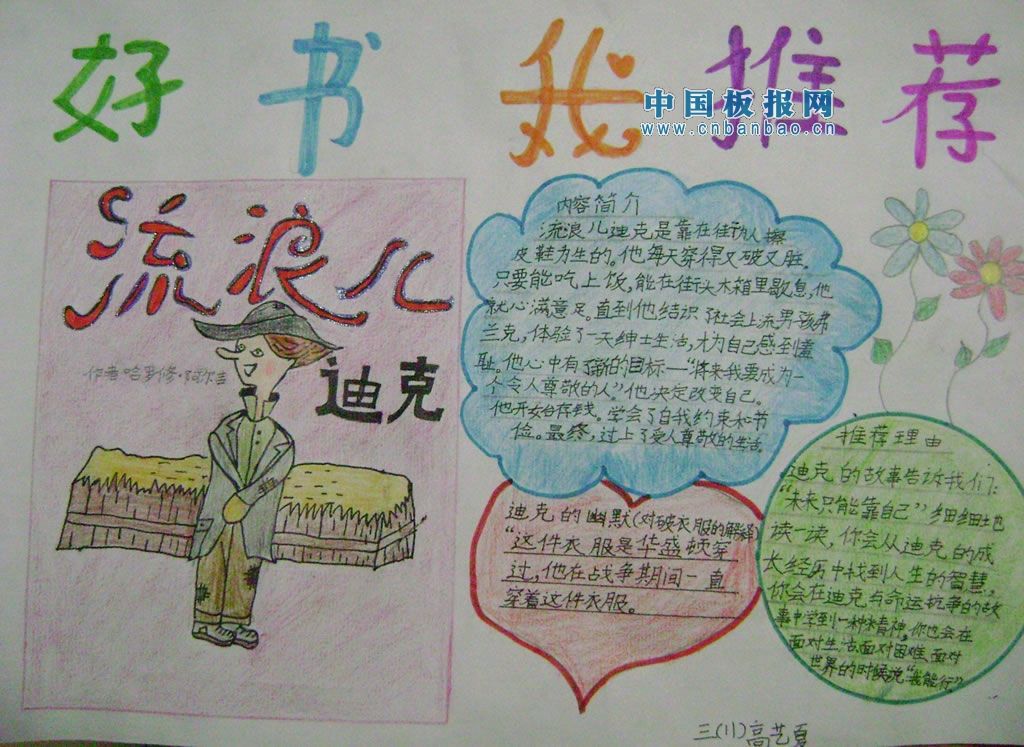 好书我推荐
中国板报网
www.cnbanbao.cn
流浪儿
迪克
作者哈罗修·阿尔吉
内容简介
流浪儿迪克是靠在街切人擦
皮鞋为生的。他每天穿得又破又脏。
只要能吃上饭,能在街头木箱里歇息,他
就心满意足。直到他结识了社会上流男孩弗
兰克,体验了一天绅士生活,才为自己感到羞
耻。他心中有了新的目标——“将来我要成为一
个令人尊敬的人”他决定改变自己。
他开始存钱。学会了自我约束和节
俭。最终,过上了受人尊敬的生活。
迪克的幽默(对破衣服的解释)
“这件衣服是华盛顿穿
过,他在战争期间一直
穿着这件衣服。
推荐理由
迪克的故事告诉我们:
“未来只能靠自己”细细地
读一读,你会从迪克的成
长经历中找到人生的智慧,
你会在迪克与命运抗争的故
事中学到一种精神,你也会在
面对生活面对困难面对
世界的时候说“我能行”
三(11)高艺夏